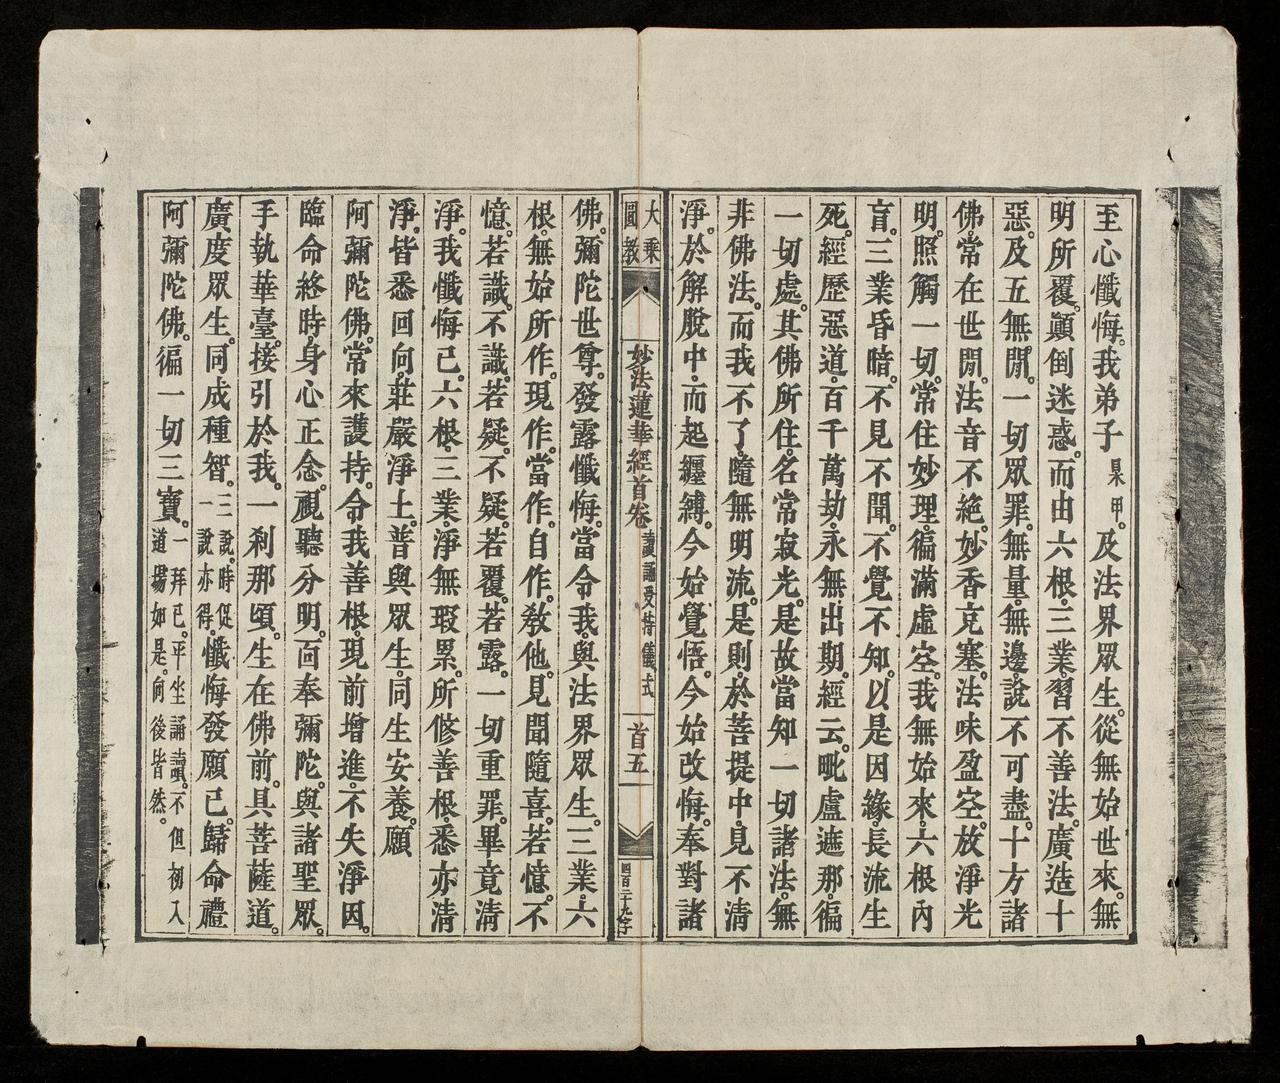 至心懺悔。我弟子杲甲。及法界眾生。從無始世來。無
明所覆。顛倒迷惑。而由六根。三業。習不善法。廣造十
惡。及五無閒。一切眾罪。無量。無邊。說不可盡。十方諸
佛。常在世閒。法音不絕。妙香充塞。法味盈空。放淨光
明。照觸一切。常住妙理。徧滿虛空。我無始來。六根內
盲。三業昏暗。不見不聞。不覺不知。以是因緣。長流生
死。經歷惡道。百千萬劫。永無出期。經云。毗盧遮那。徧
一切處。其佛所住。名常寂光。是故當知一切諸法。無
非佛法。而我不了。隨無明流。是則於菩提中。見不清
淨。於解脫中。而起纏縛。今始覺悟。今始改悔。奉對諸
大乘圓教
妙法蓮華經首卷 讀誦受持儀式
首五
四百三十九字
佛。彌陀世尊。發露懺悔。當令我。與法界眾生。三業。六
根。無始所作。現作。當作。自作。教他。見聞隨喜。若憶。不
憶。若識。不識。若疑。不疑。若覆。若露。一切重罪。畢竟清
淨。我懺悔已。六根。三業。淨無瑕累。所修善根。悉亦清
淨。皆悉回向。莊嚴淨土。普與眾生。同生安養。願
阿彌陀佛。常來護持。令我善根。現前增進。不失淨因。
臨命終時。身心正念。視聽分明。面奉彌陀。與諸聖眾。
手執華臺。接引於我。一剎那頃。生在佛前。具菩薩道。
廣度眾生。同成種智。三說。時促一說亦得。懺悔發願已。歸命禮
阿彌陀佛。徧一切三寶。一拜已。平坐誦讀。不但初入道場如是。向後皆然。